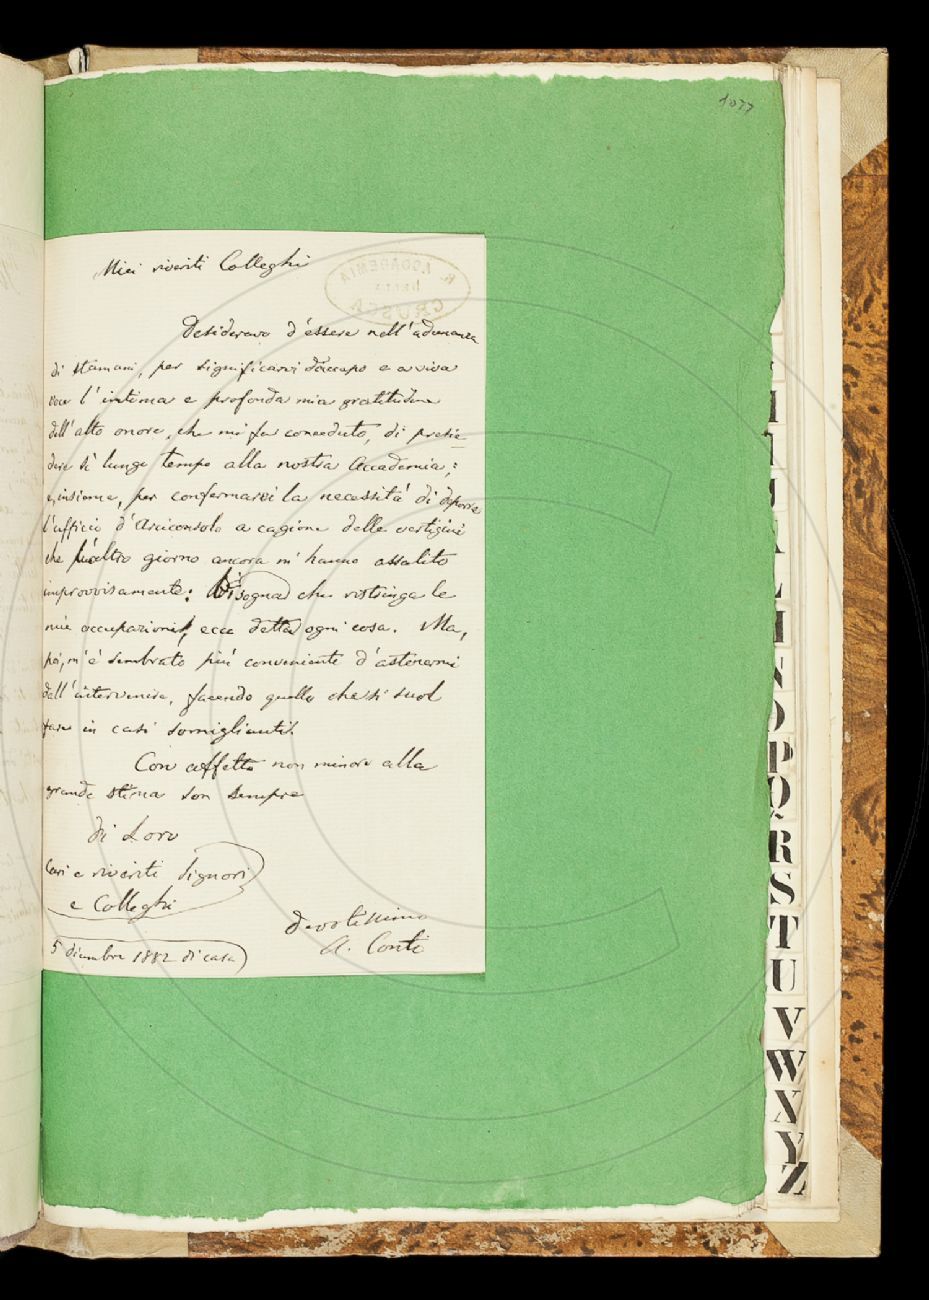 1077
Miei riveriti Colleghi
R. ACCADEMIA
DELLA
CRUSCA
Desideravo d'essere nell'adunanza
di stamani, per significarvi daccapo e a viva
voce l'intima e profonda mia gratitudine
dell'alto onore, che mi fu conceduto, di presie-
dere sì lungo tempo alla nostra Accademia;
e, insieme, per confermarvi la necessità di deporre
l'ufficio d'Arciconsolo a cagione delle vertigini
che l'altro giorno ancora m'hanno assalito
improvvisamente: Bisogna che ristringa le
mie occupazioni, ecco detta ogni cosa. Ma,
poi, m'è sembrato più conveniente d'astenermi
dall'intervenire, facendo quello che si suol
fare in casi somiglianti.
Con affetto non minore alla
grande stima son sempre
di Loro
Cari e riveriti Signori
e Colleghi
devotissimo
A. Conti
5 dicembre 1882 di casa
I
L
M
N
O
P
Q
R
S
T
U
V
W
X
Y
Z